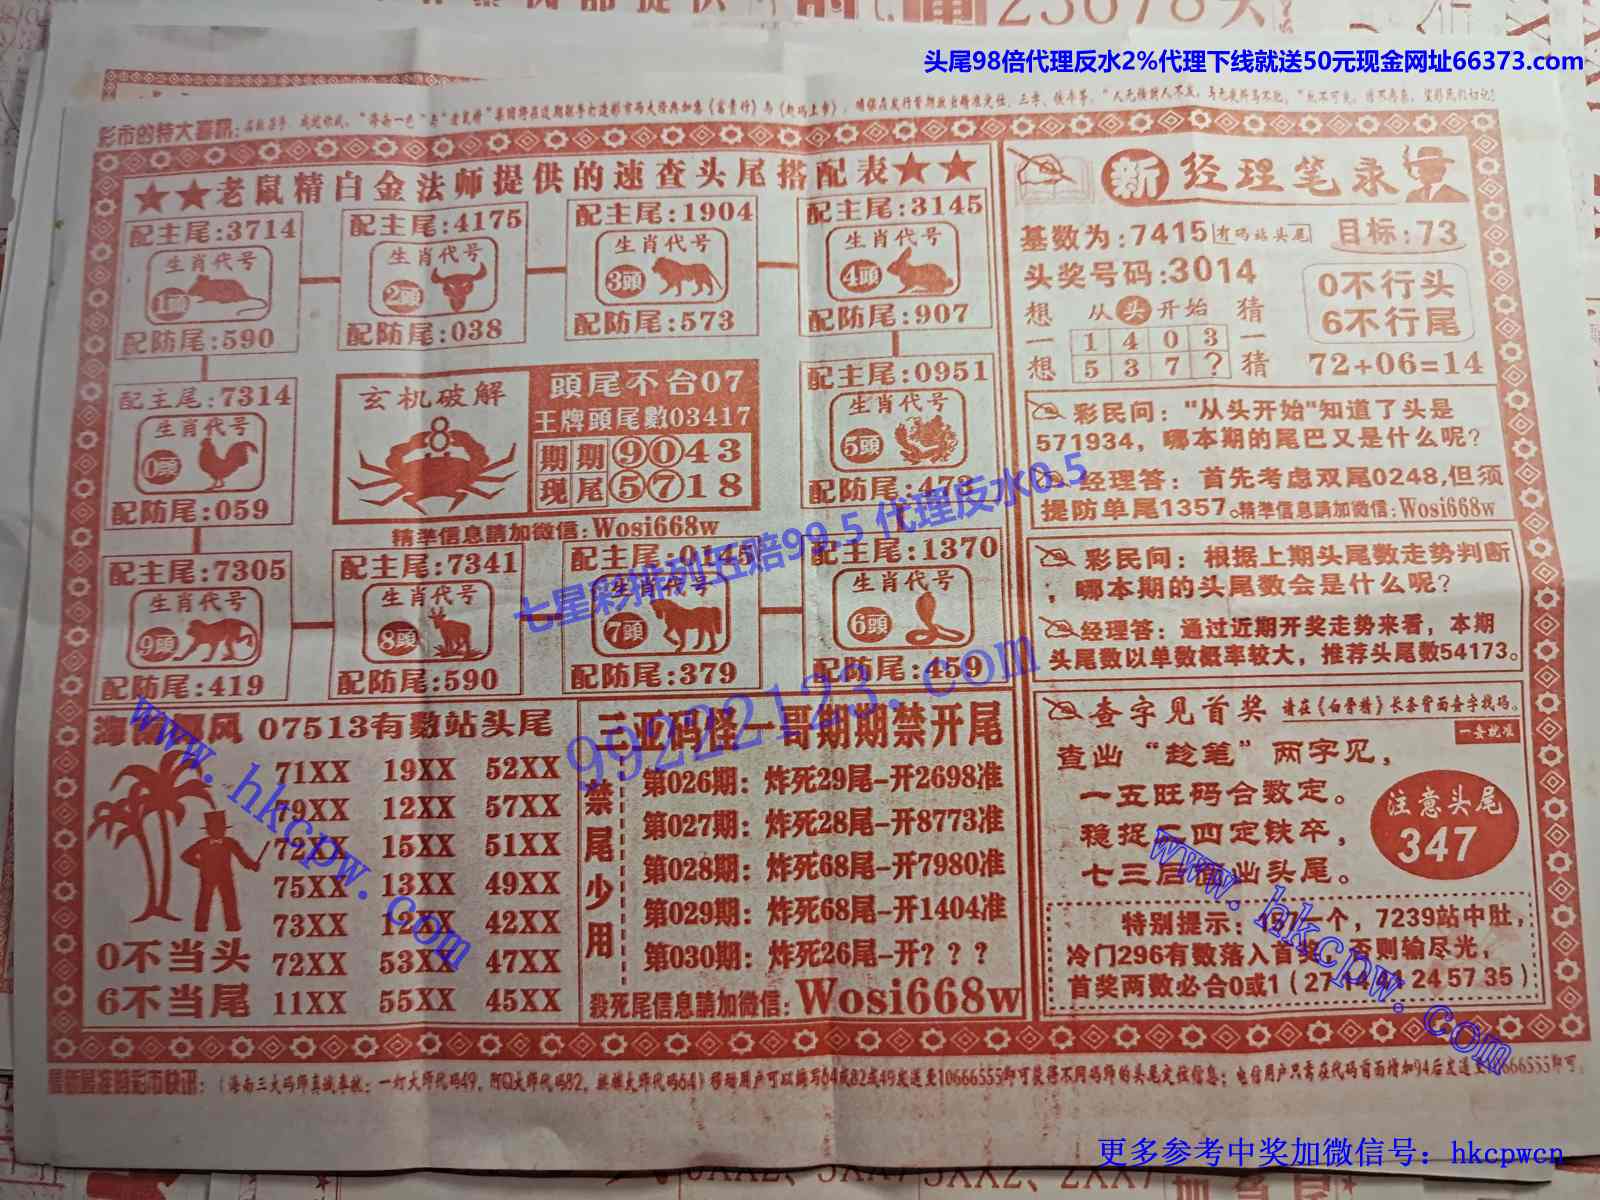 头尾98倍代理反水2%代理下线就送50元现金网址66373.com
彩市的特大喜讯:
★★老鼠精白金法师提供的速查头尾搭配表★★
配主尾:3714
生肖代号
1頭
配防尾:590
配主尾:4175
生肖代号
2頭
配防尾:038
配主尾:1904
生肖代号
3頭
配防尾:573
配主尾:3145
生肖代号
4頭
配防尾:907
配主尾:7314
生肖代号
0頭
配防尾:059
玄机破解
8
頭尾不合07
王牌頭尾數03417
期期⑨⓪43
现尾⑤⑦18
精準信息請加微信:Wosi668w
配主尾:0951
生肖代号
5頭
配防尾:473
配主尾:7305
生肖代号
9頭
配防尾:419
配主尾:7341
生肖代号
8頭
配防尾:590
配主尾:0145
生肖代号
7頭
配防尾:379
配主尾:1370
生肖代号
6頭
配防尾:459
07513有数站头尾
71XX 19XX 52XX
79XX 12XX 57XX
72XX 15XX 51XX
75XX 13XX 49XX
73XX 17XX 42XX
72XX 53XX 47XX
11XX 55XX 45XX
0不当头
6不当尾
三亚码怪一哥期期禁开尾
禁尾少用
第026期: 炸死29尾-开2698准
第027期: 炸死28尾-开8773准
第028期: 炸死68尾-开7980准
第029期: 炸死68尾-开1404准
第030期: 炸死26尾-开? ? ?
殺死尾信息請加微信: Wosi668w
新经理笔录
基数为:7415 有码站头尾 目标:73
头奖号码:3014
想 从头开始 猜
一 1 4 0 3 一
想 5 3 7 ? 猜
0不行头
6不行尾
72+06=14
彩民问: "从头开始"知道了头是
571934, 哪本期的尾巴又是什么呢?
经理答: 首先考虑双尾0248,但须
提防单尾1357。精準信息請加微信:Wosi668w
彩民问: 根据上期头尾数走势判断
, 哪本期的头尾数会是什么呢?
经理答: 通过近期开奖走势来看, 本期
头尾数以单数概率较大, 推荐头尾数54173。
查字见首奖 请在《白骨精》长条背面查字找码。
一查就准
查出“趁笔”两字见,
一五旺码合数定。
稳捉二四定铁卒,
七三后面出头尾。
注意头尾
347
特别提示: 157一个, 7239站中肚,
冷门296有数落入首奖, 否则输尽光,
首奖两数必合0或1 (27 14 41 24 57 35)
(海南三大码师真诚奉献: 一灯大师代码49, 阿Q大师代码82, 跳楼大师代码64) 移动用户可以编写64或82或49发送至10666555即可获得不同码师的头尾定位信息; 电信用户只需在代码前面增加94后发送至10666555即可。
七星彩排列五赔99.5 代理反水0.5
99222123.com
www.hkcpw.com
www.hkcpw.com
更多参考中奖加微信号: hkcpwcn